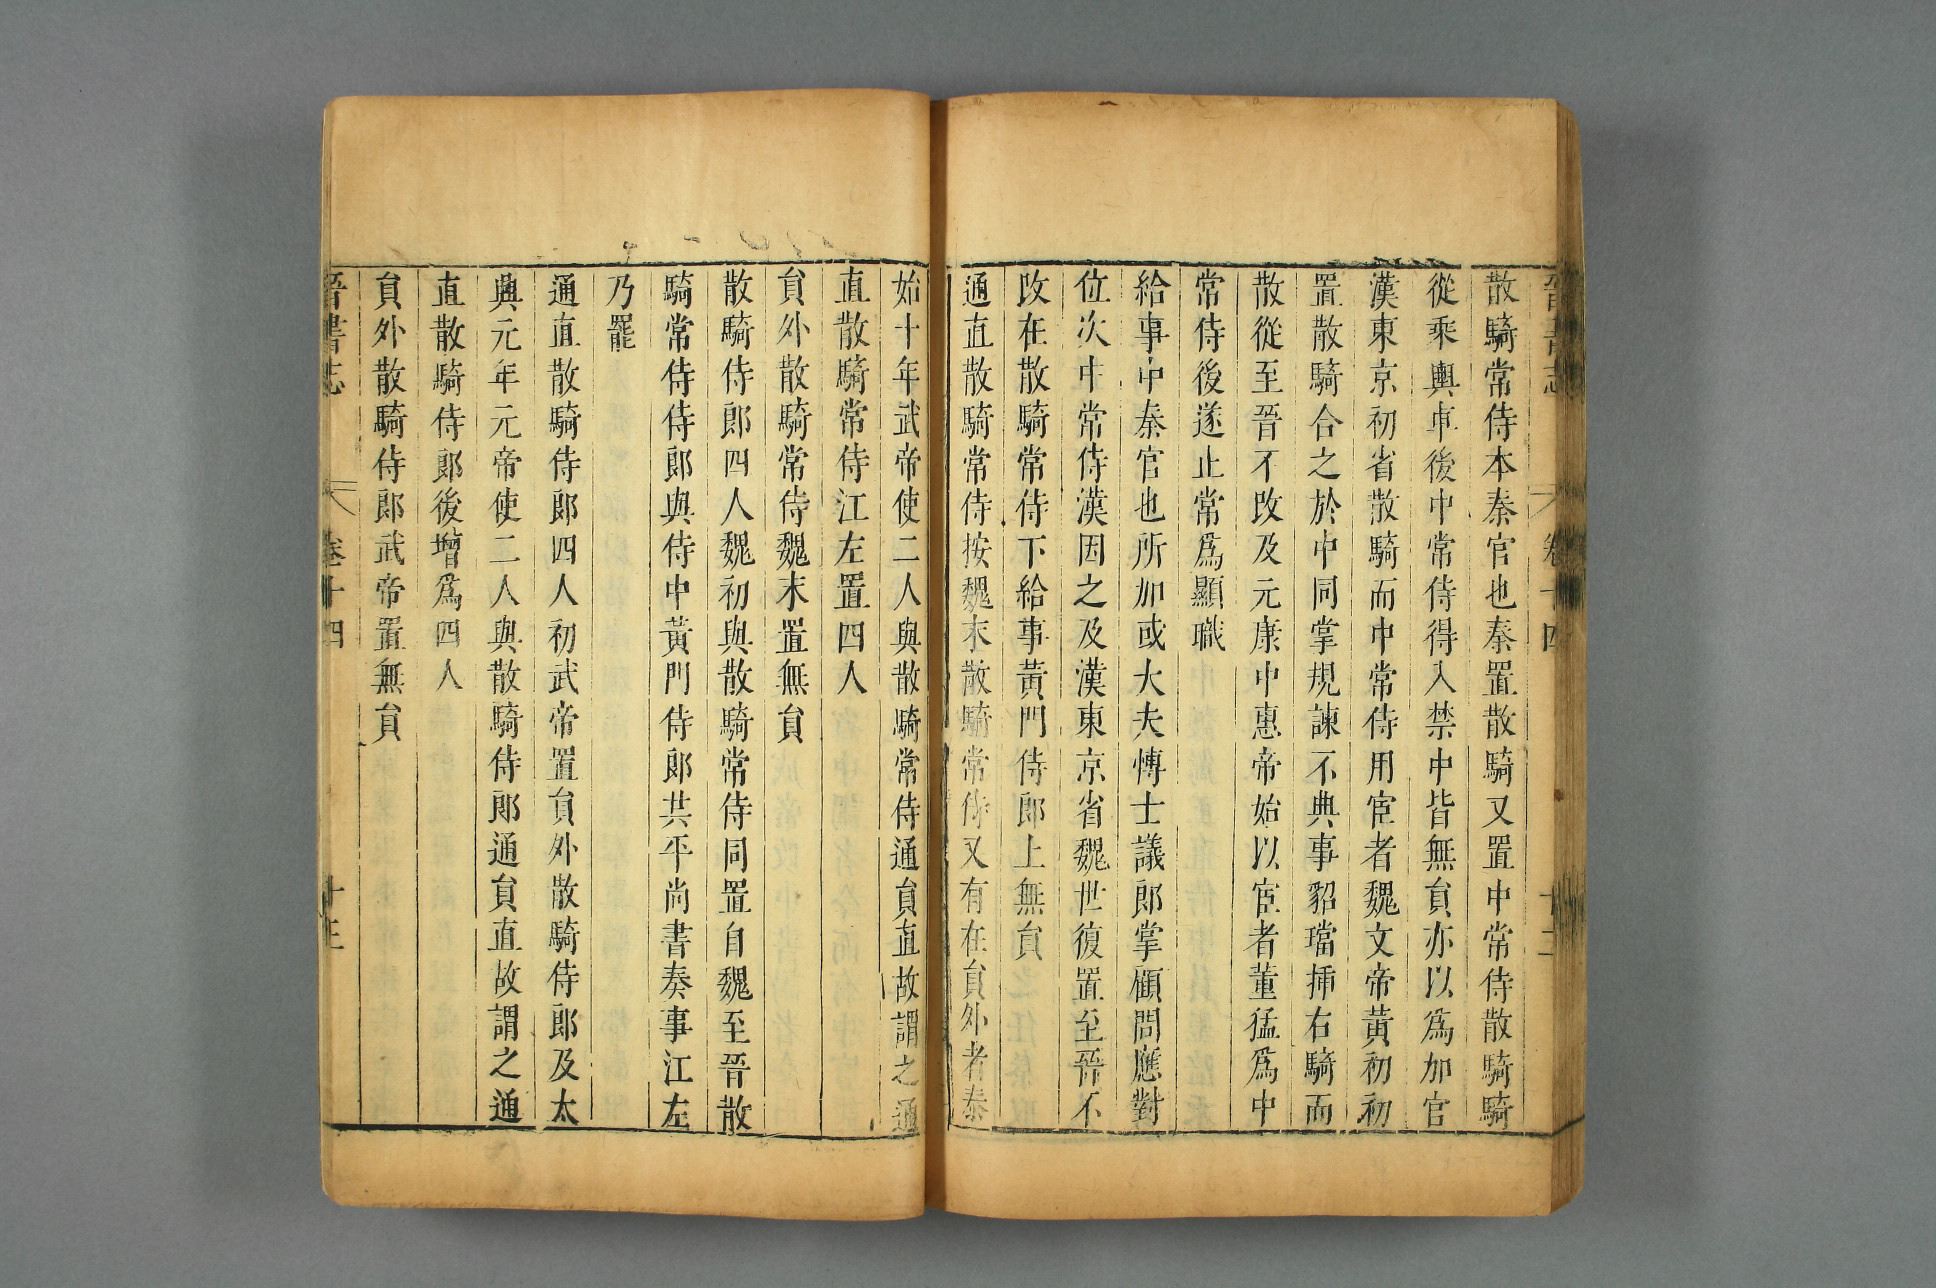 散騎常侍本秦官也秦置散騎又置中常侍散騎騎
從乘輿車後中常侍得入禁中皆無貟亦以爲加官
漢東京初省散騎而中常侍用宦者魏文帝黃初初
置散騎合之於中同掌規諫不典事貂璫揷右騎而
散從至晉不改及元康中惠帝始以宦者董猛爲中
常侍後遂止常爲顯職
給事中秦官也所加或大夫博士議郎掌顧問應對
位次中常侍漢因之及漢東京省魏世復置至晉不
改在散騎常侍下給事黃門侍郎上無貟
通直散騎常侍按魏末散騎常侍又有在貟外者泰
始十年武帝使二人與散騎常侍通貟直故謂之通
直散騎常侍江左置四人
貟外散騎常侍魏末置無貟
散騎侍郎四人魏初與散騎常侍同置自魏至晉散
騎常侍侍郎與侍中黃門侍郎共平尚書奏事江左
乃罷
通直散騎侍郎四人初武帝置貟外散騎侍郎及太
興元年元帝使二人與散騎侍郎通貟直故謂之通
直散騎侍郎後增爲四人
貟外散騎侍郎武帝置無貟
晉書志
卷十四